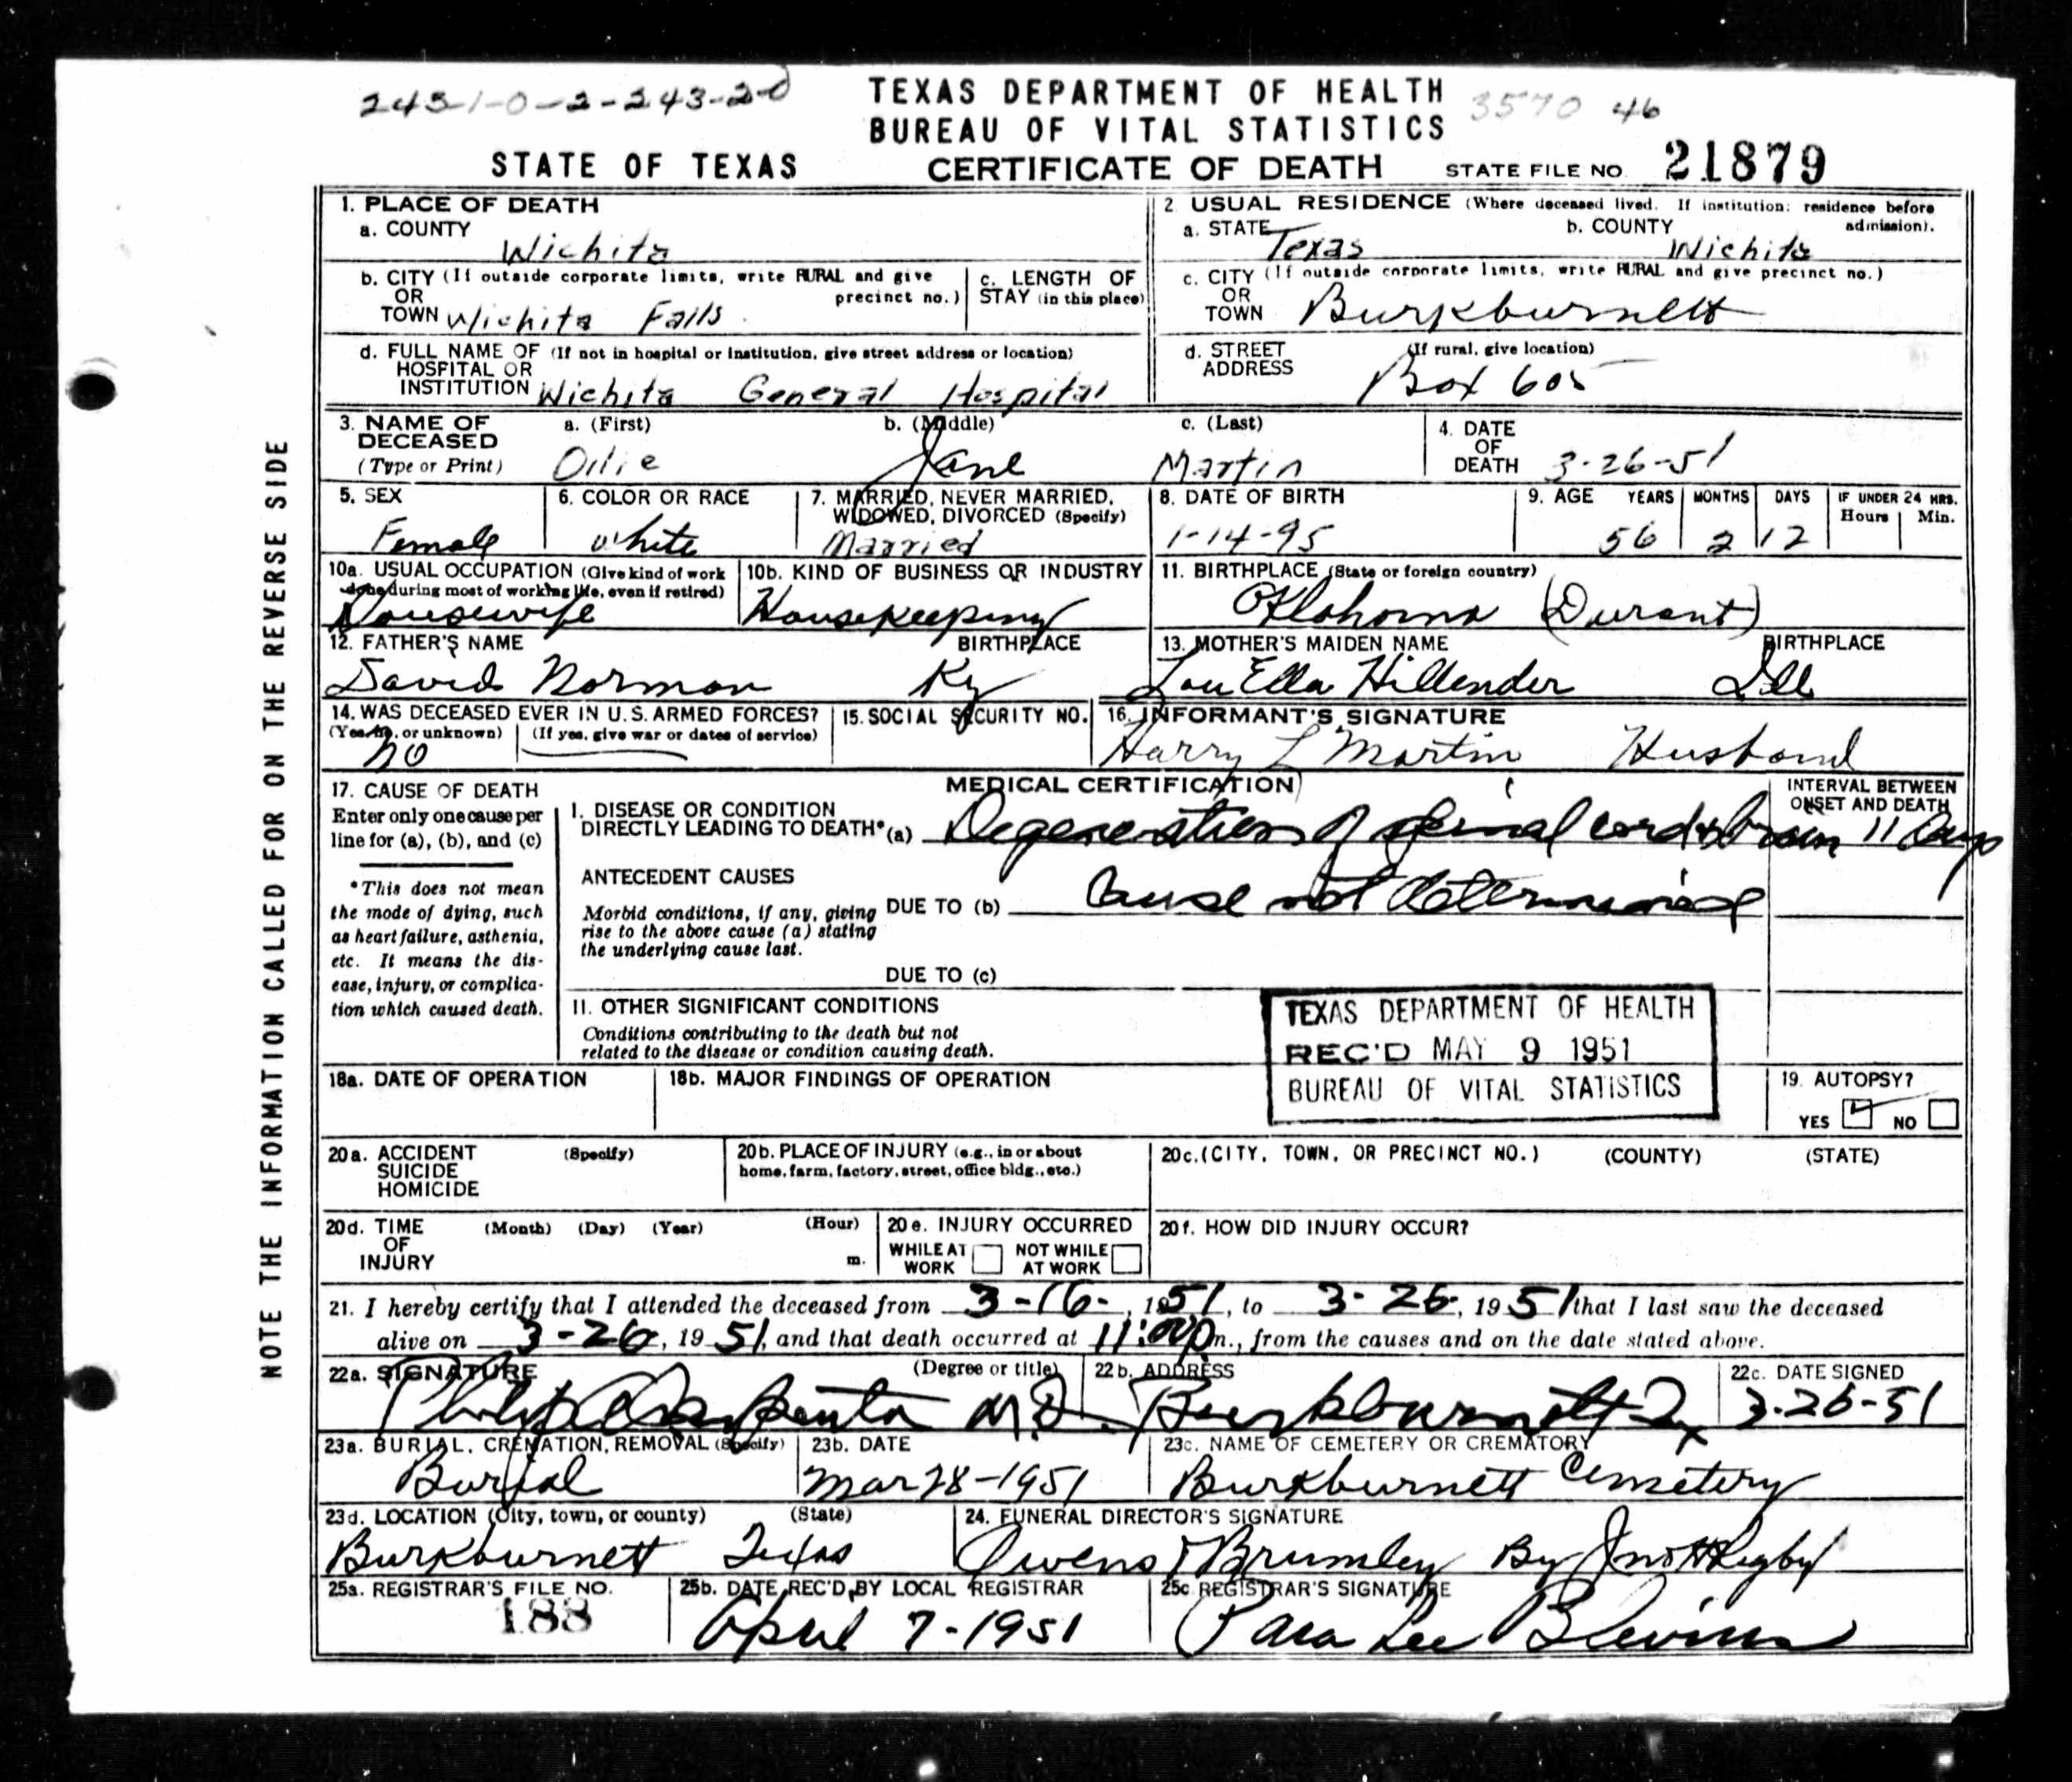 243-1-0-2-243-2-0
TEXAS DEPARTMENT OF HEALTH
BUREAU OF VITAL STATISTICS
3570 46
STATE OF TEXAS CERTIFICATE OF DEATH STATE FILE NO. 21879
NOTE THE INFORMATION CALLED FOR ON THE REVERSE SIDE
1. PLACE OF DEATH
a. COUNTY Wichita
2. USUAL RESIDENCE (Where deceased lived. If institution: residence before admission).
a. STATE Texas b. COUNTY Wichita
b. CITY (If outside corporate limits, write RURAL and give precinct no.)
OR
TOWN Wichita Falls
c. LENGTH OF
STAY (in this place)
c. CITY (If outside corporate limits, write RURAL and give precinct no.)
OR
TOWN Burkburnett
d. FULL NAME OF (If not in hospital or institution, give street address or location)
HOSPITAL OR
INSTITUTION Wichita General Hospital
d. STREET (If rural, give location)
ADDRESS Box 605
3. NAME OF DECEASED (Type or Print)
a. (First) b. (Middle) c. (Last)
Ollie Jane Martin
4. DATE OF DEATH 3-26-51
5. SEX
Female
6. COLOR OR RACE
White
7. MARRIED, NEVER MARRIED,
WIDOWED, DIVORCED (Specify)
Married
8. DATE OF BIRTH
1-14-95
9. AGE YEARS MONTHS DAYS IF UNDER 24 HRS.
Hours Min.
56 2 12
10a. USUAL OCCUPATION (Give kind of work
done during most of working life, even if retired)
Housewife
10b. KIND OF BUSINESS OR INDUSTRY
Housekeeping
11. BIRTHPLACE (State or foreign country)
Oklahoma (Durant)
12. FATHER'S NAME BIRTHPLACE
David Norman Ky
13. MOTHER'S MAIDEN NAME BIRTHPLACE
Lou Ella Hillender Ill
14. WAS DECEASED EVER IN U.S. ARMED FORCES?
(Yes, no, or unknown) (If yes, give war or dates of service)
No
15. SOCIAL SECURITY NO.
16. INFORMANT'S SIGNATURE
Harry L Martin Husband
17. CAUSE OF DEATH
Enter only one cause per
line for (a), (b), and (c)
*This does not mean
the mode of dying, such
as heart failure, asthenia,
etc. It means the dis-
ease, injury, or complica-
tion which caused death.
MEDICAL CERTIFICATION
INTERVAL BETWEEN
ONSET AND DEATH
I. DISEASE OR CONDITION
DIRECTLY LEADING TO DEATH* (a) Degeneration of spinal cord & brain 11 days
ANTECEDENT CAUSES
Morbid conditions, if any, giving
rise to the above cause (a) stating
the underlying cause last.
DUE TO (b) Cause not determined
DUE TO (c)
II. OTHER SIGNIFICANT CONDITIONS
Conditions contributing to the death but not
related to the disease or condition causing death.
TEXAS DEPARTMENT OF HEALTH
REC'D MAY 9 1951
BUREAU OF VITAL STATISTICS
18a. DATE OF OPERATION
18b. MAJOR FINDINGS OF OPERATION
19. AUTOPSY?
YES NO
20a. ACCIDENT (Specify)
SUICIDE
HOMICIDE
20b. PLACE OF INJURY (e.g., in or about
home, farm, factory, street, office bldg., etc.)
20c. (CITY, TOWN, OR PRECINCT NO.) (COUNTY) (STATE)
20d. TIME (Month) (Day) (Year) (Hour)
OF
INJURY m.
20e. INJURY OCCURRED
WHILE AT WORK NOT WHILE AT WORK
20f. HOW DID INJURY OCCUR?
21. I hereby certify that I attended the deceased from 3-16-, 1951, to 3-26, 1951 that I last saw the deceased
alive on 3-26, 1951, and that death occurred at 11:00 p m., from the causes and on the date stated above.
22a. SIGNATURE (Degree or title)
Philip Carpenter M.D.
22b. ADDRESS
Burkburnett Tx
22c. DATE SIGNED
3-26-51
23a. BURIAL, CREMATION, REMOVAL (Specify)
Burial
23b. DATE
Mar 28-1951
23c. NAME OF CEMETERY OR CREMATORY
Burkburnett Cemetery
23d. LOCATION (City, town, or county) (State)
Burkburnett Texas
24. FUNERAL DIRECTOR'S SIGNATURE
Owens & Brumley By Jno H Rigby
25a. REGISTRAR'S FILE NO.
188
25b. DATE REC'D BY LOCAL REGISTRAR
April 7-1951
25c. REGISTRAR'S SIGNATURE
Para Lee Blevins